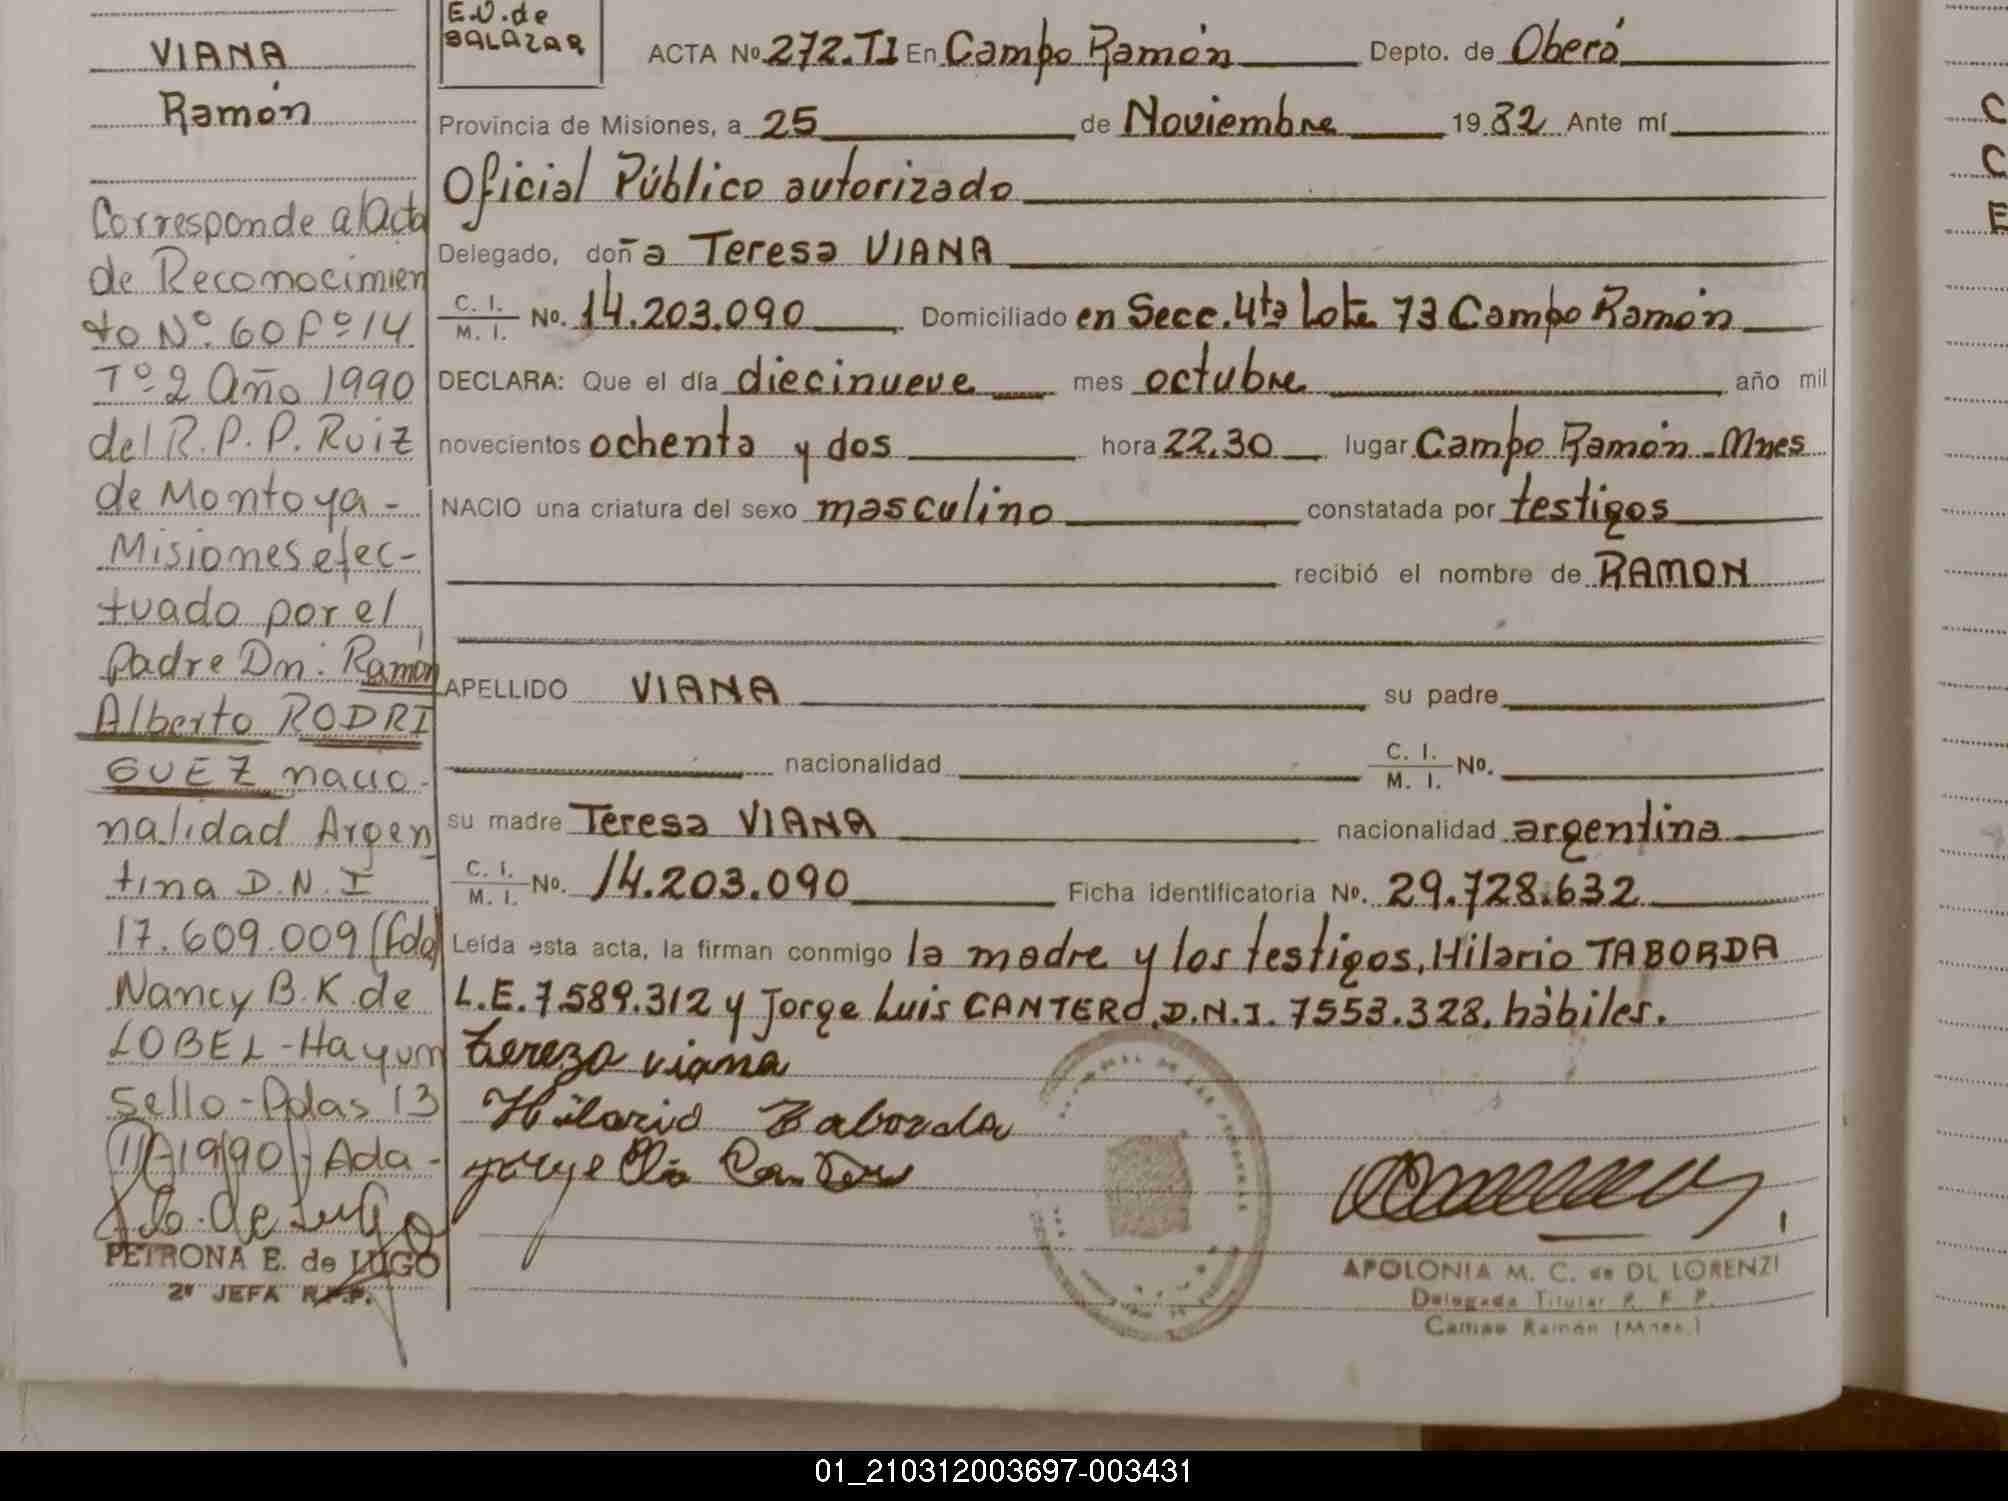 VIANA
Ramón
Corresponde al Acta
de Reconocimien
to Nº. 60 Fº 14
Tº 2 Año 1990
del R.P.P. Ruiz
de Montoya -
Misiones efec-
tuado por el
padre Dn: Ramón
Alberto RODRI
GUEZ nacio-
nalidad Argen
tina D.N.I
17.609.009 (fdo)
Nancy B.K. de
LOBEL - Hay un
sello - Pdas 13
11/1990 - Ada -
PETRONA E. de LUGO
2ª JEFA R.P.P.
E.V. de
SALAZAR
ACTA No 272.TI En Campo Ramón Depto. de Oberó
Provincia de Misiones, a 25 de Noviembre 19 82 Ante mí
Oficial Público autorizado
Delegado, doña Teresa VIANA
C. I. / M. I. No. 14.203.090 Domiciliado en Secc. 4ta Lote 73 Campo Ramón
DECLARA: Que el día diecinueve mes octubre año mil
novecientos ochenta y dos hora 22.30 lugar Campo Ramón - Mnes
NACIO una criatura del sexo masculino constatada por testigos
recibió el nombre de RAMON
APELLIDO VIANA su padre
nacionalidad C. I. / M. I. No.
su madre Teresa VIANA nacionalidad argentina
C. I. / M. I. No. 14.203.090 Ficha identificatoria No. 29.728.632
Leída esta acta, la firman conmigo la madre y los testigos, Hilario TABORDA
L.E. 7.589.312 y Jorge Luis CANTERO, D.N.I. 7553.328, hábiles.
tereza viana
Hilario Taborda
APOLONIA M. C. de DL LORENZI
Delegada Titular R. P. P.
Campo Ramón (Mnes.)
01_210312003697-003431